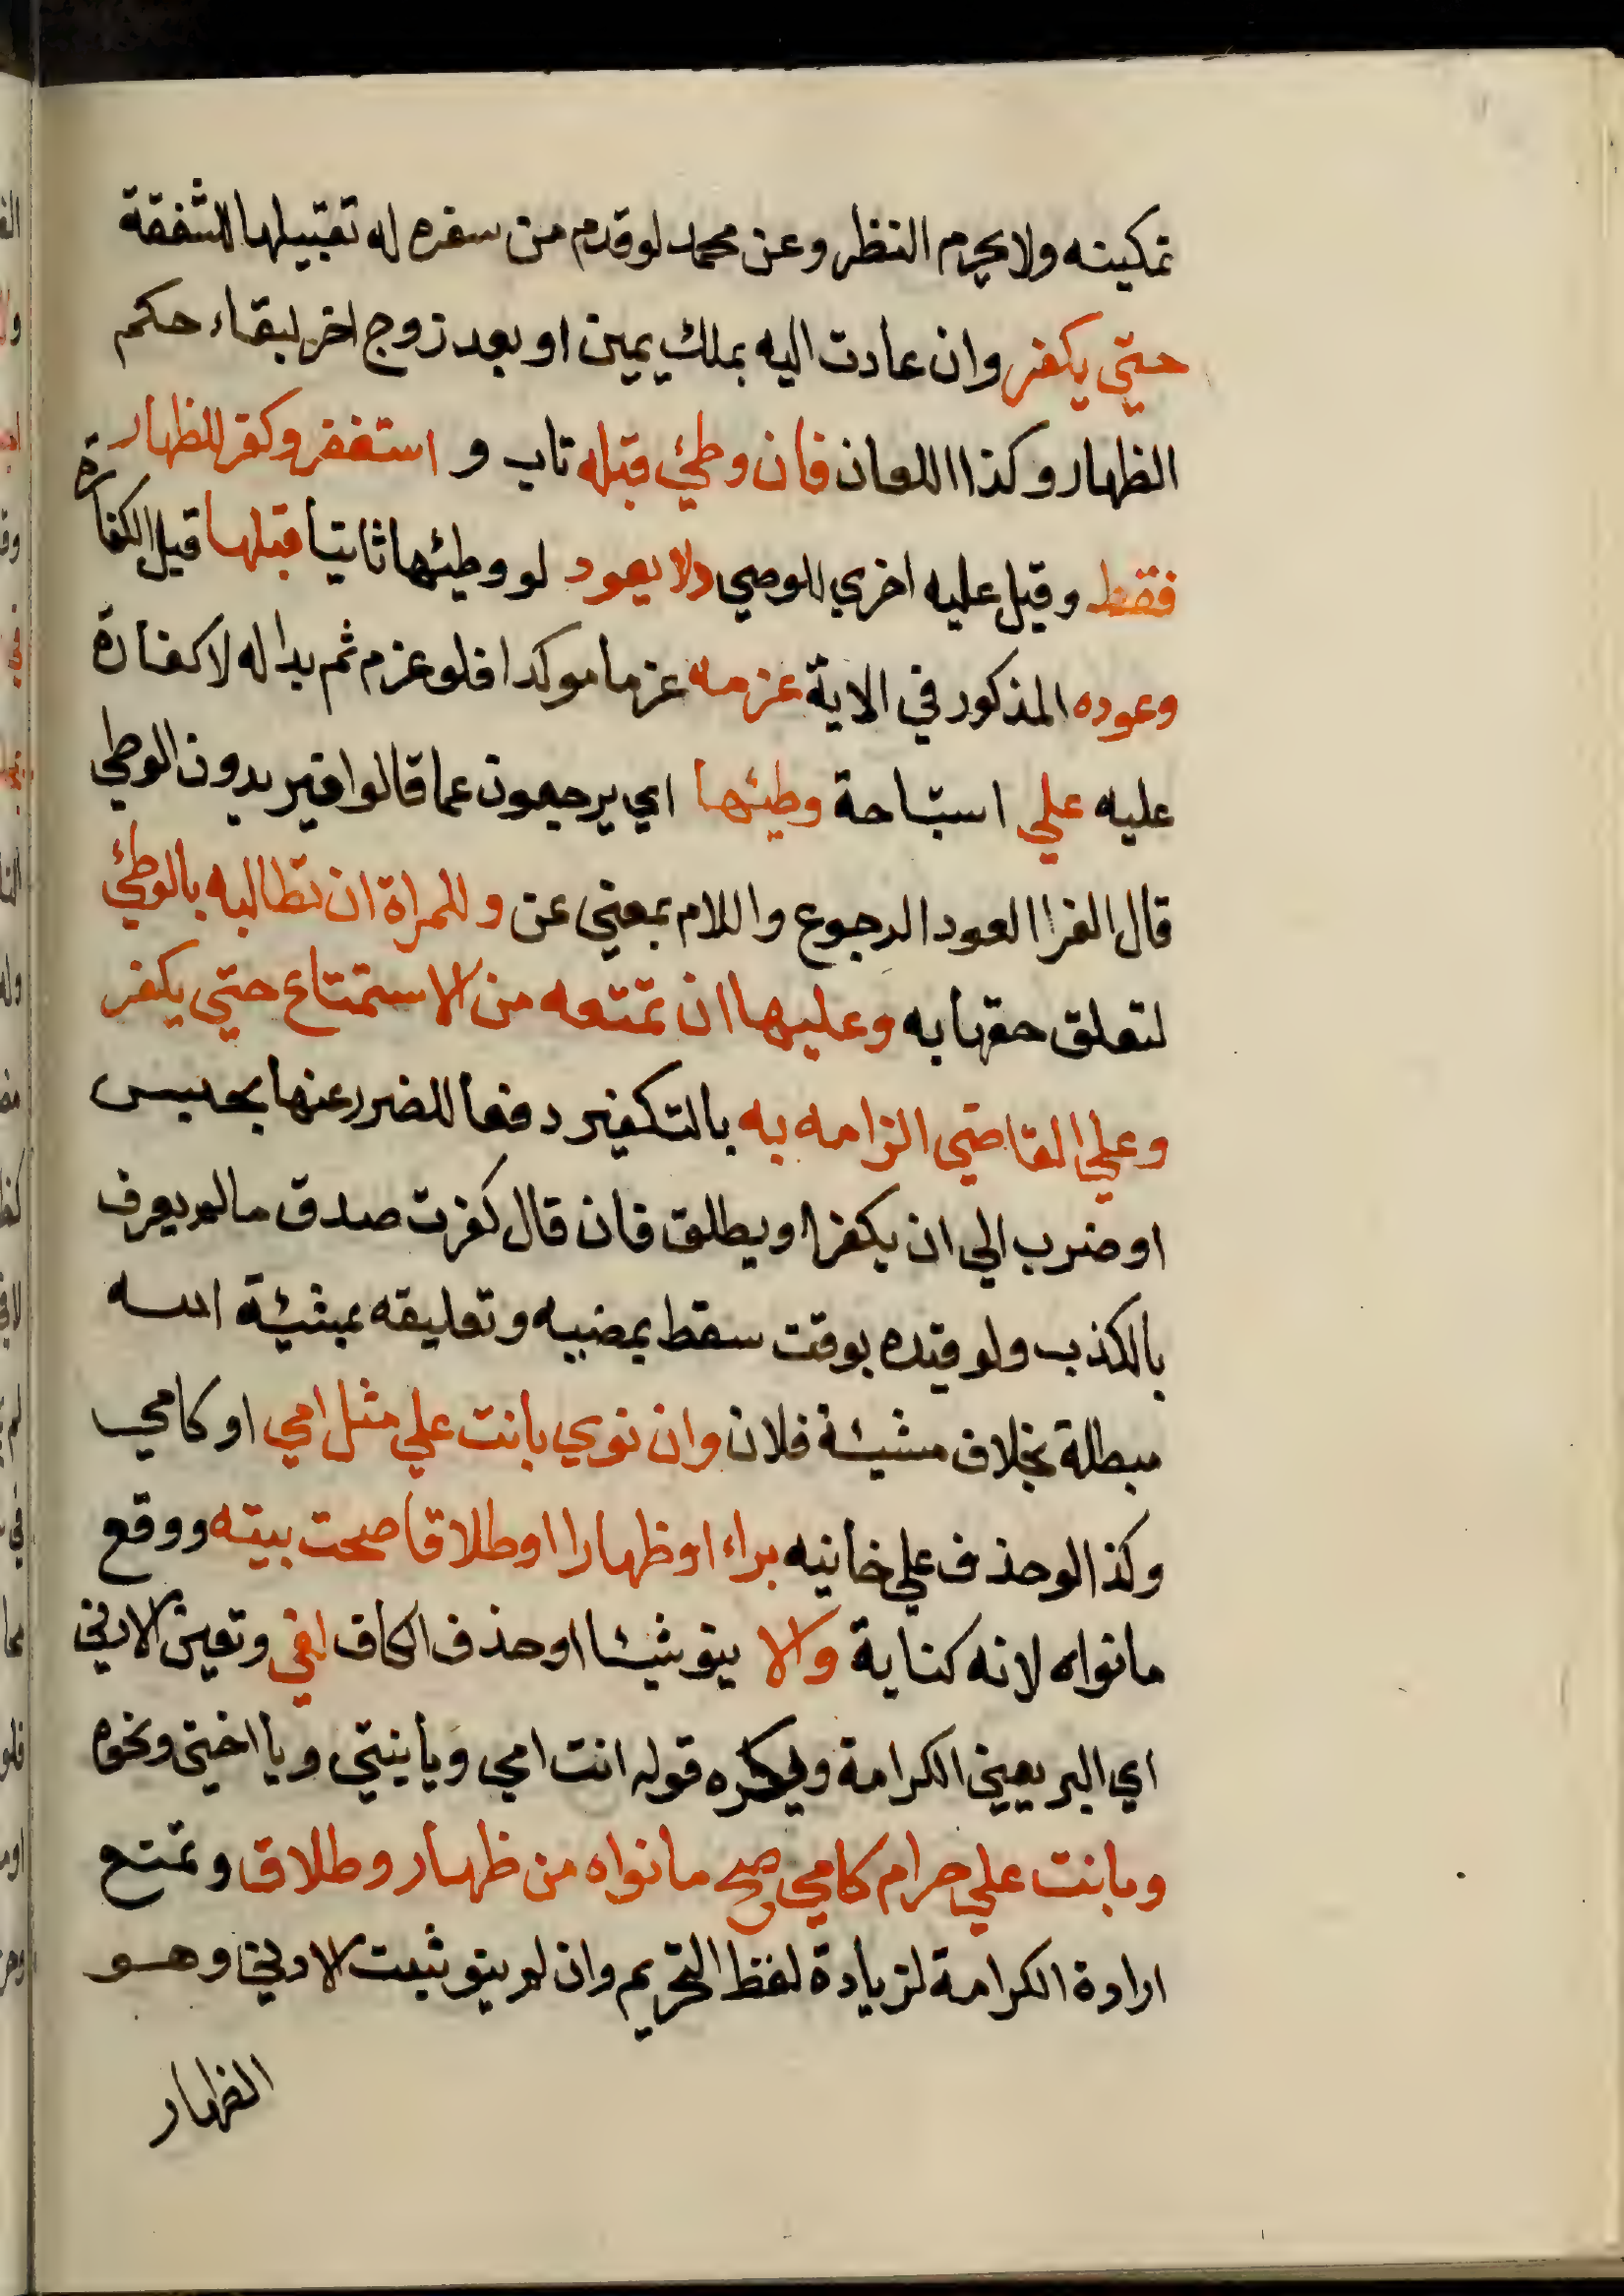 تمكينه ولا يحرم النظر وعن محمد لو قدم من سفره له تقبيلها للشفقة
حتي يكفر وان عادت اليه بملك يمين او بعد زوج اخر لبقاء حكم
الظهار وكذا اللعان فان وطئ قبله تاب و استغفر وكفر للظهار
فقط وقيل عليه اخري للوصي ولا يعود لو وطئها ثانيا قبلها قبل الكفارة
وعوده المذكور في الاية عزمه عزما موكدا فلو عزم ثم بدا له لا كفارة
عليه علي استباحة وطيئها اي يرجعون عما قالوا فيريدون الوطي
قال الفرا العود الرجوع واللام بمعني عن وللمراة ان تطالبه بالوطئ
لتعلق حقها به وعليها ان تمتعه من الاستمتاع حتي يكفر
وعلي القاضي الزامه به بالتكفير دفعا للضرر عنها بحبس
او ضرب الي ان يكفر او يطلق فان قال كفرت صدق ما لم يعرف
بالكذب ولو قيده بوقت سقط بمضيه وتعليقه بمشيئة الله
مبطلة بخلاف مشيئة فلان وان نوي بانت علي مثل امي او كامي
وكذا لو حذف علي خانيه براء او ظهارا او طلاقا صحت بيته ووقع
ما نواه لانه كناية والا ينو شيئا او حذف الكاف لغي وتعين الادني
اي البر يعني الكرامة ويكره قوله انت امي ويا بنتي ويا اختي ونحوه
وبانت علي حرام كامي صح ما نواه من ظهار وطلاق وتمتع
ارادة الكرامة لزيادة لفظ التحريم وان لم ينو ثبت الادني وهو
الظهار